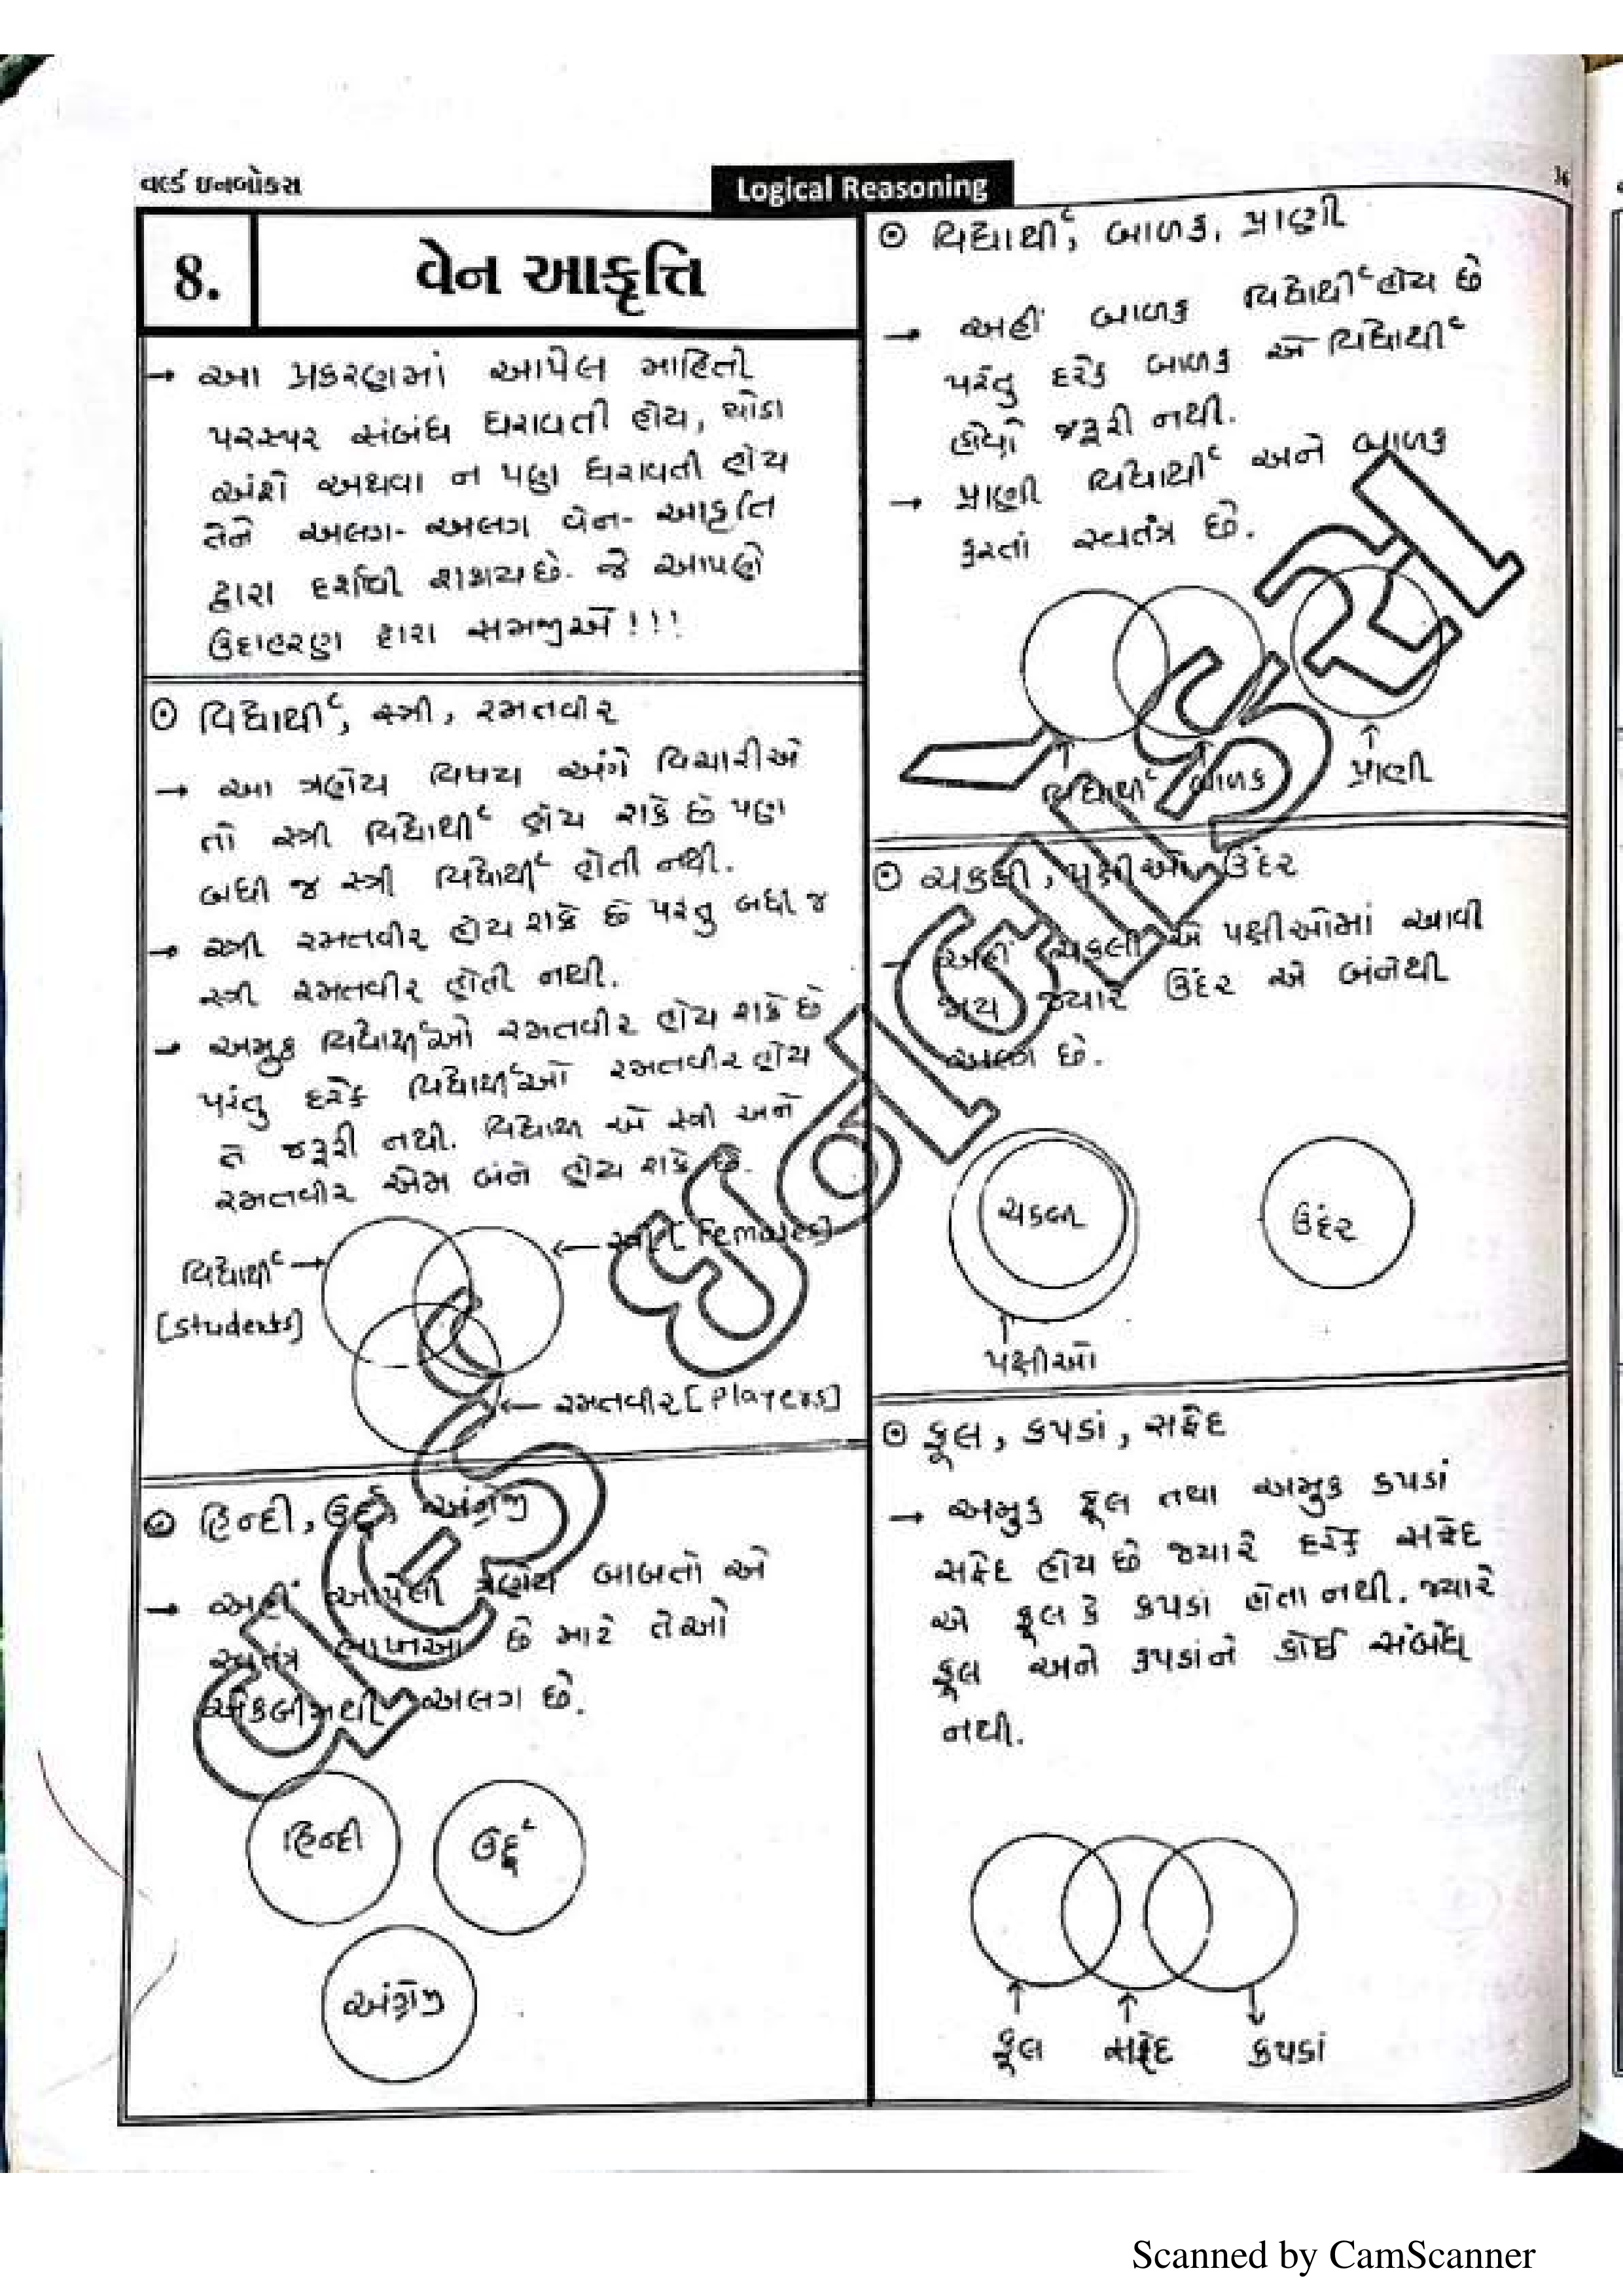 વર્લ્ડ ઇનબોક્સ
Logical Reasoning
36
8.
વેન આકૃત્તિ
→ આ પ્રકરણમાં આપેલ માહિતી
પરસ્પર સંબંધ ધરાવતી હોય, થોડા
અંશે અથવા ન પણ ધરાવતી હોય
તેને અલગ-અલગ વેન-આકૃતિ
દ્વારા દર્શાવી શકાય છે. જે આપણે
ઉદાહરણ દ્વારા સમજીએ!!!
⊙ વિદ્યાર્થી, સ્ત્રી, રમતવીર
→ આ ત્રણેય વિષય અંગે વિચારીએ
તો સ્ત્રી વિદ્યાર્થી હોય શકે છે પણ
બધી જ સ્ત્રી વિદ્યાર્થી હોતી નથી.
→ સ્ત્રી રમતવીર હોય શકે છે પરંતુ બધી જ
સ્ત્રી રમતવીર હોતી નથી.
→ અમુક વિદ્યાર્થીઓ રમતવીર હોય શકે છે
પરંતુ દરેક વિદ્યાર્થીઓ રમતવીર હોય
તે જરૂરી નથી. વિદ્યાર્થી એ સ્ત્રી અને
રમતવીર એમ બંને હોય શકે છે.
વિદ્યાર્થી →
[Students]
← સ્ત્રી [Females]
← રમતવીર [Players]
⊙ હિન્દી, ઉર્દૂ, અંગ્રેજી
→ અહીં આપેલી ત્રણેય બાબતો એ
સ્વતંત્ર ભાષાઓ છે માટે તેઓ
એકબીજાથી અલગ છે.
હિન્દી
ઉર્દૂ
અંગ્રેજી
⊙ વિદ્યાર્થી, બાળક, પ્રાણી
→ અહીં બાળક વિદ્યાર્થી હોય છે
પરંતુ દરેક બાળક એ વિદ્યાર્થી
હોવો જરૂરી નથી.
→ પ્રાણી વિદ્યાર્થી અને બાળક
કરતાં સ્વતંત્ર છે.
વિદ્યાર્થી
બાળક
પ્રાણી
⊙ ચકલી, પક્ષીઓ, ઉંદર
→ અહીં ચકલી એ પક્ષીઓમાં આવી
જાય જ્યારે ઉંદર એ બંનેથી
અલગ છે.
ચકલી
ઉંદર
પક્ષીઓ
⊙ ફૂલ, કપડાં, સફેદ
→ અમુક ફૂલ તથા અમુક કપડાં
સફેદ હોય છે જ્યારે દરેક સફેદ
એ ફૂલ કે કપડાં હોતા નથી. જ્યારે
ફૂલ અને કપડાંને કોઈ સંબંધ
નથી.
ફૂલ
સફેદ
કપડાં
Scanned by CamScanner